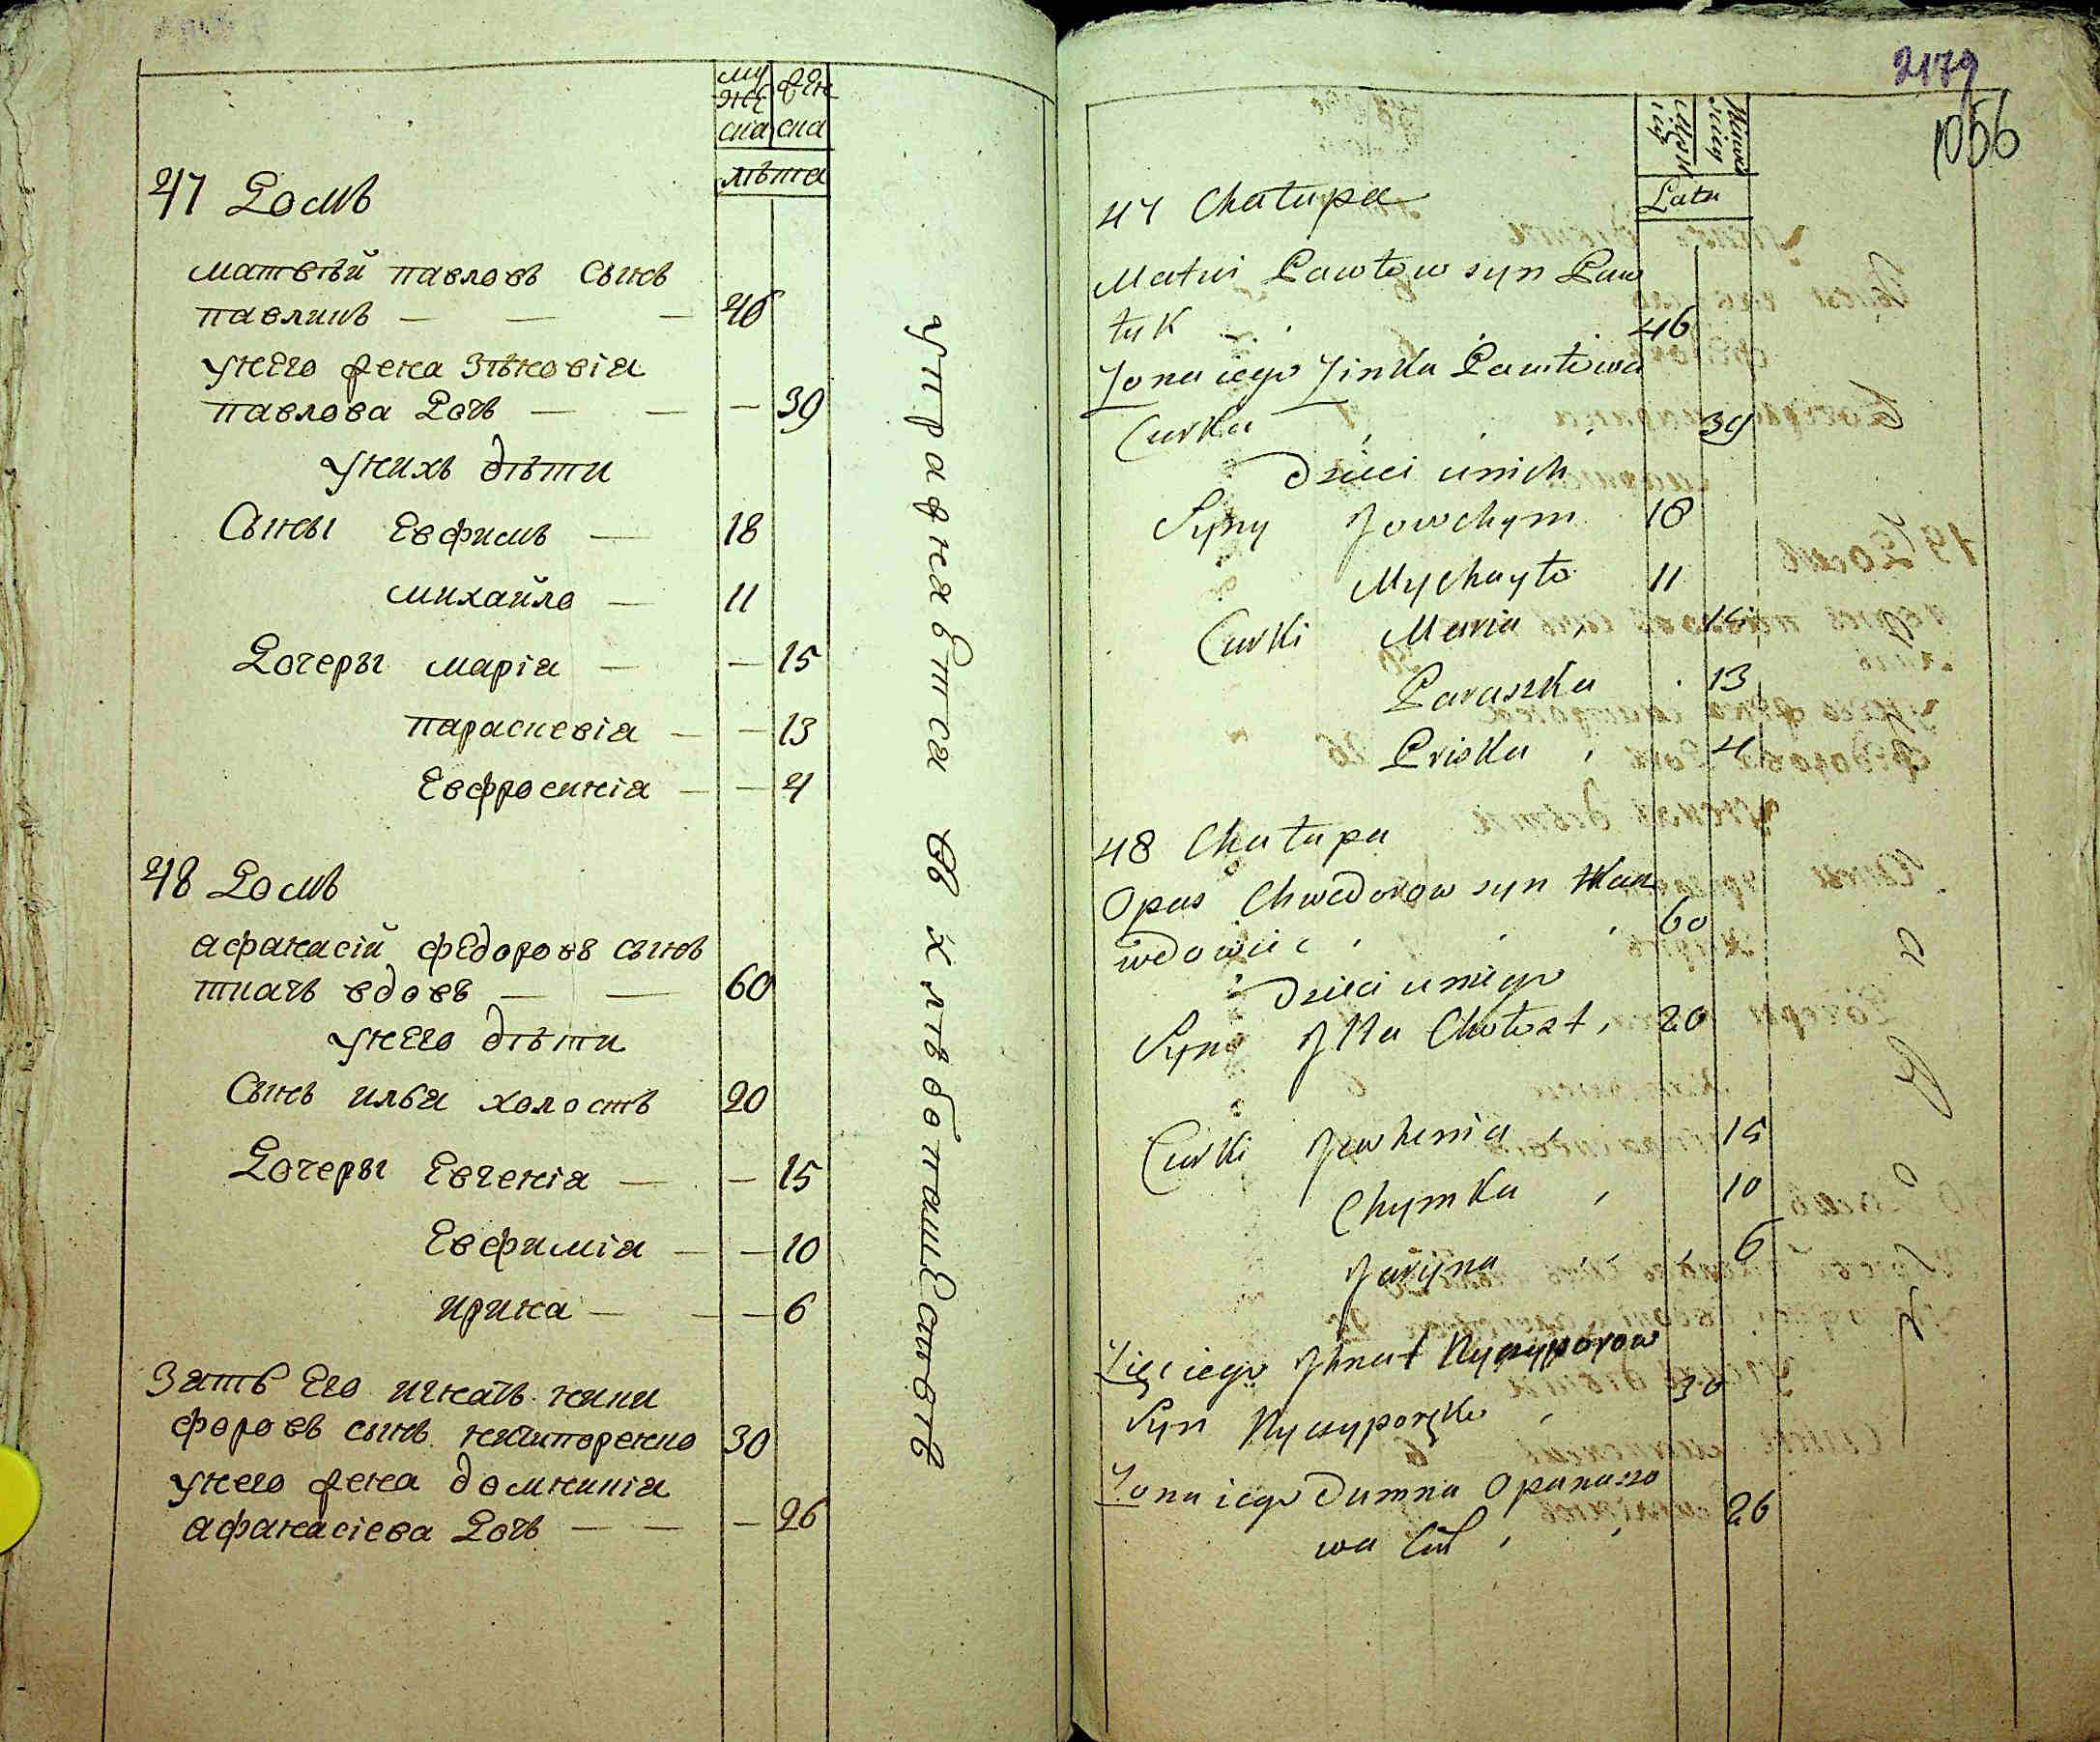 му фен
жес
ска ска
лѣта
47 Домъ
матвѣй павловъ сынъ
павликъ — — — 46
унего фена Зѣновіа
павлова Дочь — — — 39
унихъ дѣти
Сыны Евфимъ — 18
михайло — 11
Дочеры маріа — — 15
параскевіа — — 13
Евфросиніа — — 4
48 Домъ
афанасій федоровъ сынъ
ткачь вдовъ — — 60
унего дѣти
Сынъ илья холостъ 20
Дочеры Евгеніа — — 15
Евфиміа — — 10
ирина — — — 6
Зять Его игнать ники
форовъ сынъ ничипоренко 30
унего фена домникіа
афанасіева Дочь — — — 26
упражнявтся въ хлѣбопашЕствѣ
2179
1056
Latu
47 Chałupa
Matwi Pawłow syn Paw
łuk 46
Żona iego Zinka Pawłowa
Curka 39
Dzieci unich
Syny Jowchym 18
Mychayło 11
Curki Maria 15
Paraszka 13
Priska 4
48 Chałupa
Opas Chwedorow syn Tkacz
wdowiec 60
Dzieci uniego
Syn Jlia Chołost 20
Curki Jewhenia 15
Chymka 10
Jaryna 6
Zięć iego Jhnat Nyczyporow
Syn Nyczyporęko 30
Żona iego Dumna Opanaso
wa Cur 26